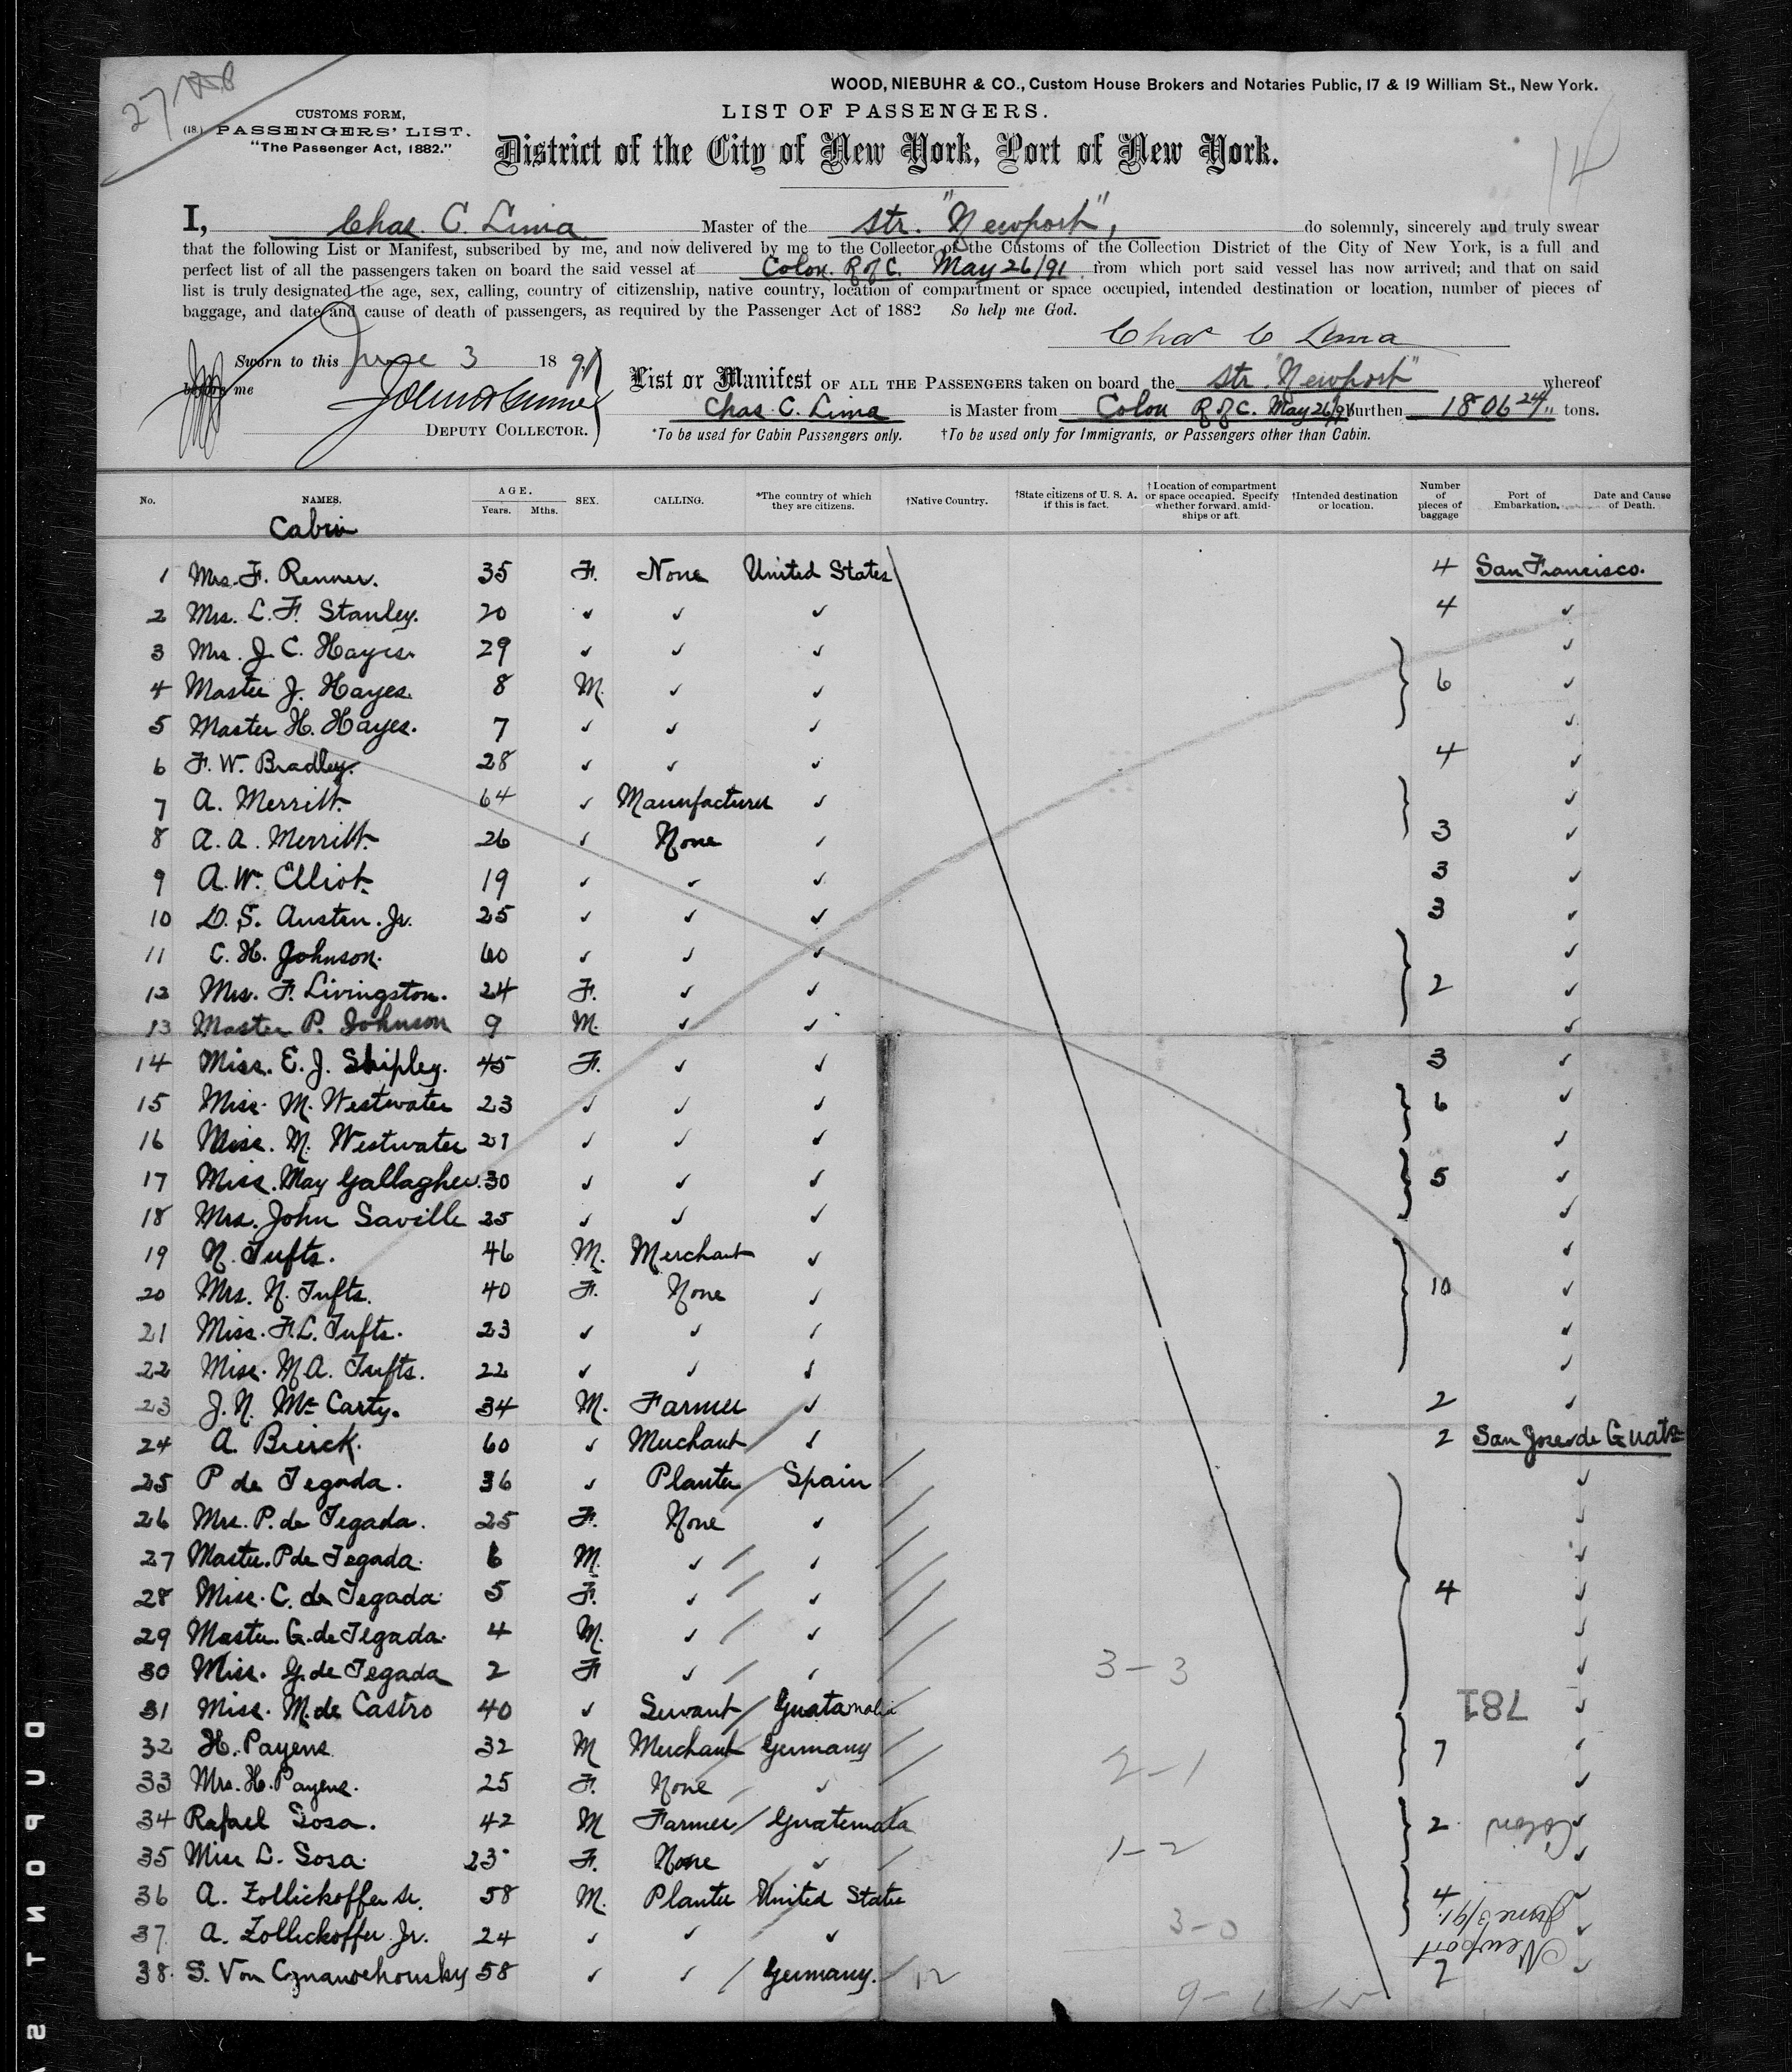 27
WOOD, NIEBUHR & CO., Custom House Brokers and Notaries Public, 17 & 19 William St., New York.
CUSTOMS FORM,
(18.) PASSENGERS' LIST.
"The Passenger Act, 1882."
LIST OF PASSENGERS.
District of the City of New York, Port of New York.
14
I, Chas. C. Lima Master of the Str. "Newport", do solemnly, sincerely and truly swear
that the following List or Manifest, subscribed by me, and now delivered by me to the Collector of the Customs of the Collection District of the City of New York, is a full and
perfect list of all the passengers taken on board the said vessel at Colon. R of C. May 26/91 from which port said vessel has now arrived; and that on said
list is truly designated the age, sex, calling, country of citizenship, native country, location of compartment or space occupied, intended destination or location, number of pieces of
baggage, and date and cause of death of passengers, as required by the Passenger Act of 1882 So help me God.
Chas C Lima
Sworn to this June 3 1891
before me
DEPUTY COLLECTOR.
List or Manifest OF ALL THE PASSENGERS taken on board the Str. "Newport" whereof
Chas. C. Lima is Master from Colon R of C. May 26/91 burthen 1806 24/" tons.
*To be used for Cabin Passengers only. †To be used only for Immigrants, or Passengers other than Cabin.
No. NAMES. AGE. Years. Mths. SEX. CALLING. *The country of which they are citizens. †Native Country. †State citizens of U. S. A. if this is fact. †Location of compartment or space occupied. Specify whether forward, amidships or aft. †Intended destination or location. Number of pieces of baggage Port of Embarkation. Date and Cause of Death.
Cabin
1 Mrs. F. Renner. 35 F. None United States 4 San Francisco.
2 Mrs. L. F. Stanley. 20 ✓ ✓ ✓ 4 ✓
3 Mrs. J. C. Hayes. 29 ✓ ✓ ✓ ✓
4 Master J. Hayes. 8 M. ✓ ✓ 6 ✓
5 Master H. Hayes. 7 ✓ ✓ ✓ ✓
6 F. W. Bradley. 28 ✓ ✓ ✓ 4 ✓
7 A. Merritt. 64 ✓ Manufacturer ✓ ✓
8 A. A. Merritt. 26 ✓ None ✓ 3 ✓
9 A. W. Elliot. 19 ✓ ✓ ✓ 3 ✓
10 D. S. Austin. Jr. 25 ✓ ✓ ✓ 3 ✓
11 C. H. Johnson. 60 ✓ ✓ ✓ ✓
12 Mrs. F. Livingston. 24 F. ✓ ✓ 2 ✓
13 Master P. Johnson 9 M. ✓ ✓ ✓
14 Miss. E. J. Shipley. 45 F. ✓ ✓ 3 ✓
15 Miss. M. Westwater 23 ✓ ✓ ✓ 6 ✓
16 Miss. M. Westwater 21 ✓ ✓ ✓ ✓
17 Miss. May Gallagher. 30 ✓ ✓ ✓ 5 ✓
18 Mrs. John Saville 25 ✓ ✓ ✓ ✓
19 N. Tufts. 46 M. Merchant ✓ ✓
20 Mrs. N. Tufts. 40 F. None ✓ 10 ✓
21 Miss. F. L. Tufts. 23 ✓ ✓ ✓ ✓
22 Miss. M A. Tufts. 22 ✓ ✓ ✓ ✓
23 J. N. McCarty. 34 M. Farmer ✓ 2 ✓
24 A. Bierck. 60 ✓ Merchant ✓ 2 San Jose de Guata
25 P de Tegada. 36 ✓ Planter Spain ✓
26 Mrs. P. de Tegada. 25 F. None ✓ ✓
27 Master. P de Tegada. 6 M. ✓ ✓ ✓
28 Miss. C. de Tegada. 5 F. ✓ ✓ 4 ✓
29 Master. G. de Tegada. 4 M. ✓ ✓ ✓
30 Miss. G. de Tegada 2 F ✓ ✓ 3-3 ✓
31 Miss. M. de Castro 40 ✓ Servant Guatamala 781 ✓
32 H. Payens 32 M Merchant Germany 2-1 7 ✓
33 Mrs. H. Payens. 25 F. None ✓ ✓
34 Rafael Sosa. 42 M Farmer Guatemala 2 Colon ✓
35 Miss L. Sosa. 23 F. None ✓ 1-2 ✓
36 A. Zollickoffer Sr. 58 M. Planter United States 4 June 3/91. ✓
37. A. Zollickoffer Jr. 24 ✓ ✓ ✓ 3-0 Newport ✓
38. S. Von 58 ✓ ✓ Germany. 12 2 ✓
DUPONT S